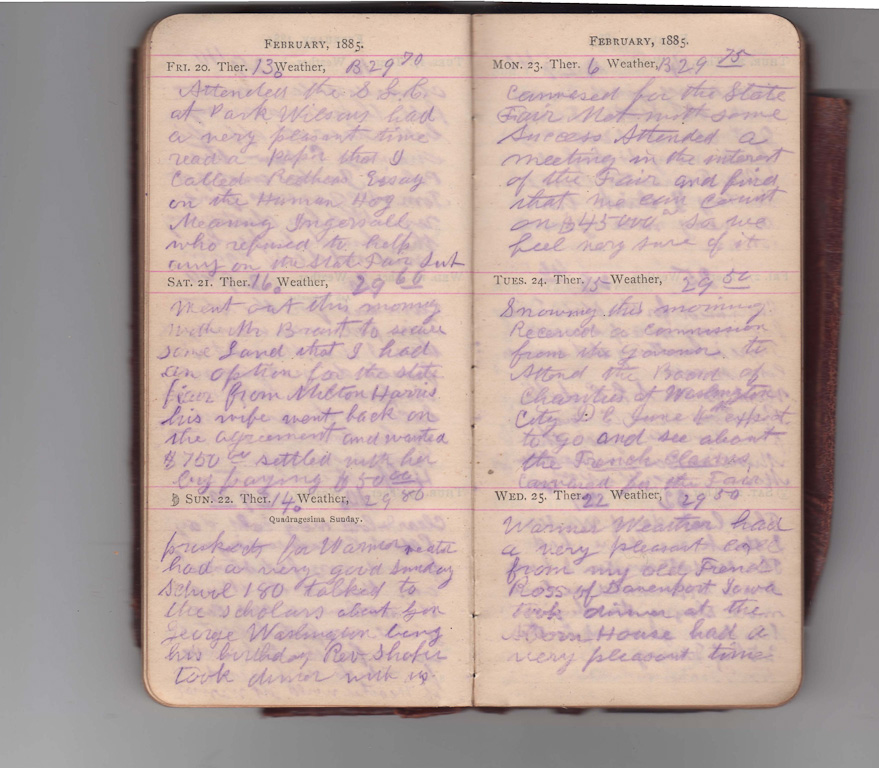 FEBRUARY, 1885.
FRI. 20. Ther. 13 Weather, B 29 70
Attended the S. S. C.
at Park Wilsons had
a very pleasant time
read a Paper that I
called Redhead Essay
on the Human Hog
Meaning Ingersoll
who refused to help
any on the State Fair Sub
SAT. 21. Ther. 16 Weather, 29 60
Went out this morning
with Mr to secure
some Land that I had
an option for the state
fair from Milton Harris
his wife went back on
the agreement and wanted
$750 00 settled with her
by paying $50 00
SUN. 22. Ther. 14 Weather, 29 80
Quadragesima Sunday.
for Warmer
had a very good Sunday
School 180 talked to
the scholars about Gen
George Washington being
his birthday Rev Shafer
took dinner with us
FEBRUARY, 1885.
MON. 23. Ther. 6 Weather, B 29 75
Canvased for the State
Fair Met with some
Success Attended a
meeting in the interest
of the Fair and find
that we can count
on $45000 00 so we
feel very sure of it
TUES. 24. Ther. 15 Weather, 29 50
Snowing this morning
Received a commission
from the Govenor to
Attend the Board of
Charities at Washington
City D C June 4th expect
to go and see about
the French Claims,
Canvased for the Fair
WED. 25. Ther. 22 Weather, 29 50
Warmer Weather had
a very pleasant call
from my old Friend
Ross of Davenport Iowa
took dinner at the
House had a
very pleasant time